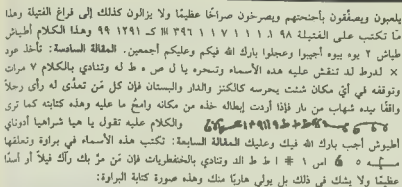 يلعبون ويصفّقون بأجنحتهم ويصرخون صراخًا عظيمًا ولا يزالون كذلك إلى فراغ الفتيلة وهذا
ما تكتب على الفتيلة ٩٨ ١ ١ ٧ ١ ١ ١١ ٣٩٦ كـ ١٢٩١ ٩٩ وهذا الكلام أطياش
طياش ٢ يوه بيوه أجيبوا وعجلوا بارك الله فيكم وعليكم أجمعين. المقالة السادسة: تأخذ عود
× لدرط لد تنقش عليه هذه الأسماء وتسحره يا ل ص ه ط له وتنادي بالكلام ٧ مرات
وتوقفه في أيّ مكان شئت يحرسه كالكنز والدار والبستان فإن كل مَن تعدّى له رأى رجلاً
واقفًا بيده شهاب من نار فإذا أردت إبطاله خذه من مكانه وامحُ ما عليه وهذه كتابته كما ترى
والكلام عليه تقول يا هيا شراهيا أدوناي
أطيوش أجب بارك الله فيك وعليك المقالة السابعة: تكتب هذه الأسماء في براوة وتعلقها
٥ ٦ امن ١ # ا ط ط الد وتنادي بالخنفطريات فإن مَن مرّ بك رآك فيلاً أو أسدًا
عظيمًا ولا يشك في ذلك بل يولي هاربًا منك وهذه صورة كتابة البراوة: